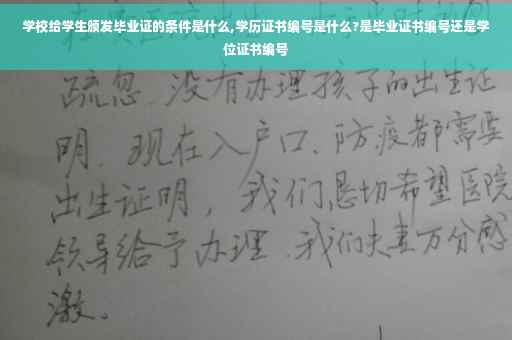 学校给学生颁发毕业证的条件是什么,学历证书编号是什么?是毕业证书编号还是学
位证书编号
疏忽.没有办理孩子的出生证
明.现在入户口、防疫都需要
出生证明，我们恳切希望医院
领导给予办理.我们夫妻万分感
激。